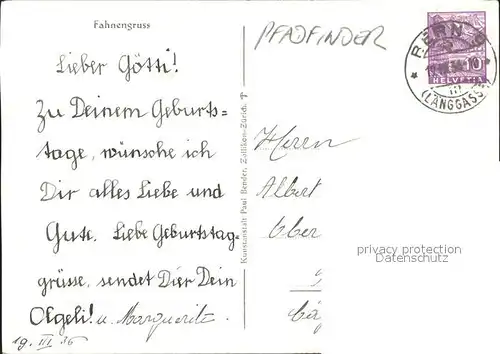 Fahnengruss
PFADFINDER
Lieber Götti!
Zu Deinem Geburts=
tage, wünsche ich
Dir alles Liebe und
Gute. Liebe Geburtstag-
grüsse, sendet Dier Dein
Olgeli! u. Marguerite.
19. III. 36
Kunstanstalt Paul Bender, Zollikon-Zürich
BERN
(LÄNGGASSE)
10
HELVETIA
Herrn
Albert
Ober
privacy protection
Datenschutz